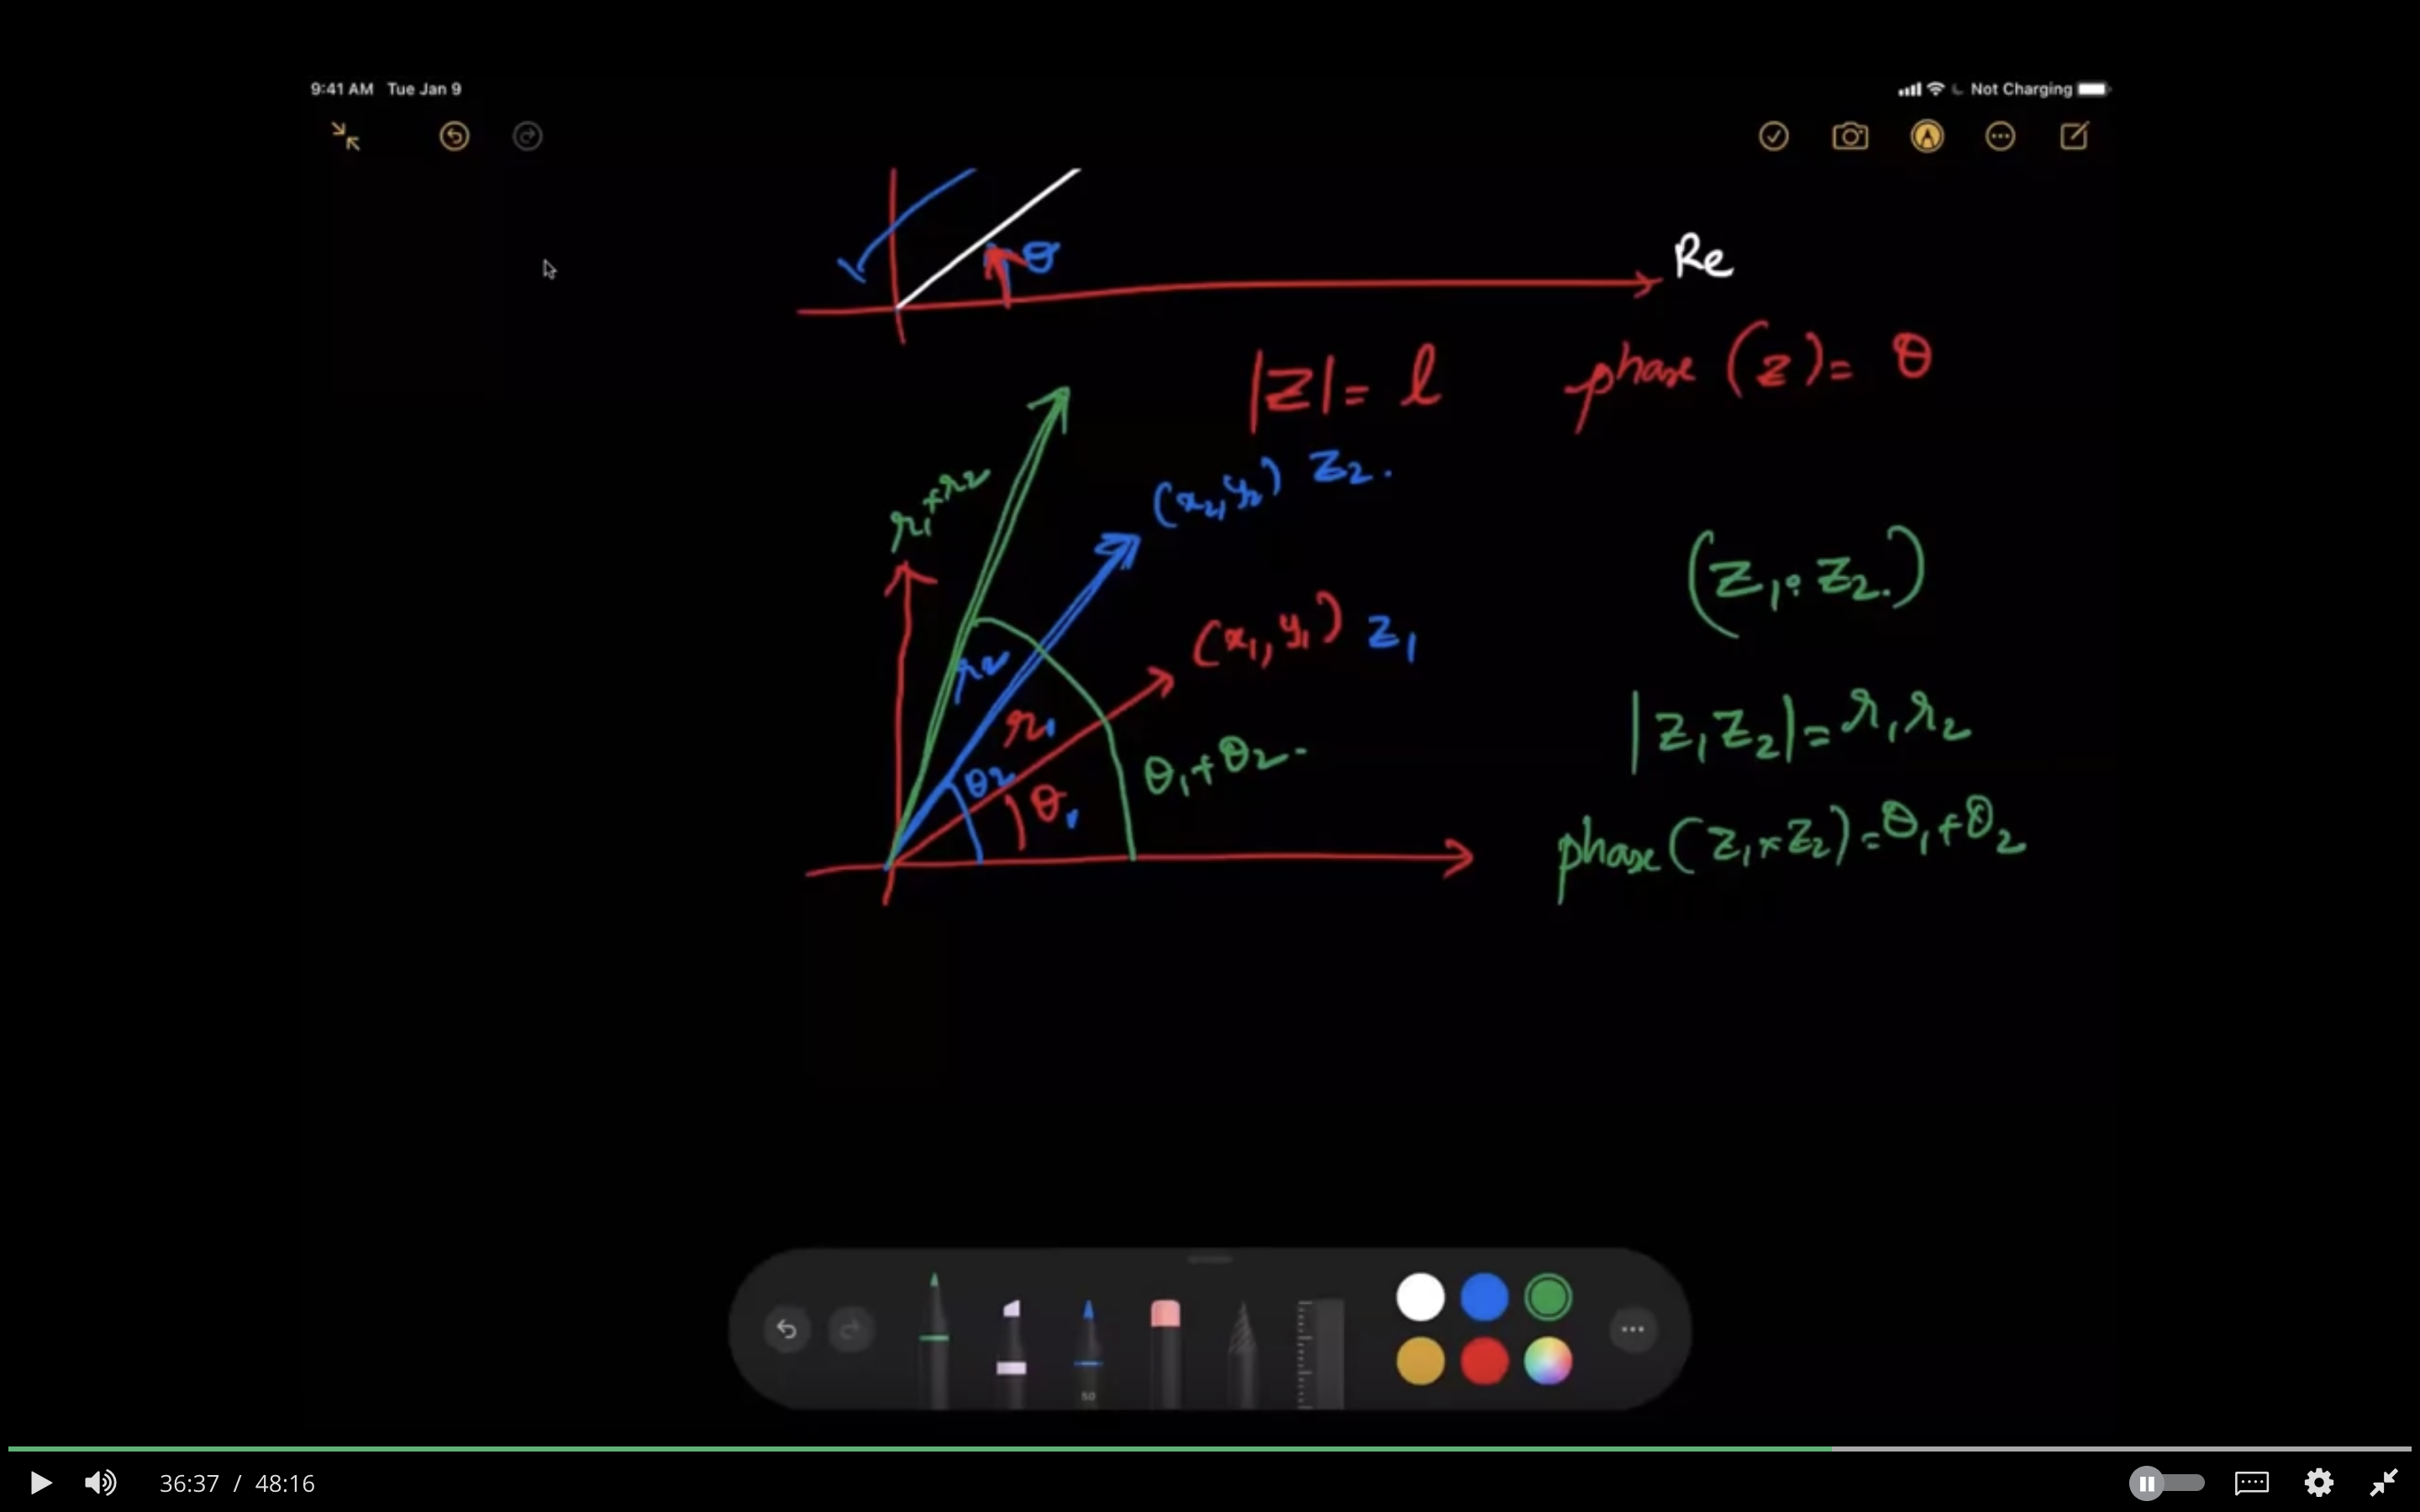 9:41 AM Tue Jan 9
Not Charging
θ
Re
|z| = l
phase (z) = θ
r₁+r₂
(x₂, y₂) z₂.
(z₁ : z₂.)
(x₁, y₁) z₁
r₂
r₁
|z₁z₂| = r₁r₂
θ₂
θ₁
θ₁+θ₂-
phase(z₁×z₂) = θ₁+θ₂
50
36:37 / 48:16